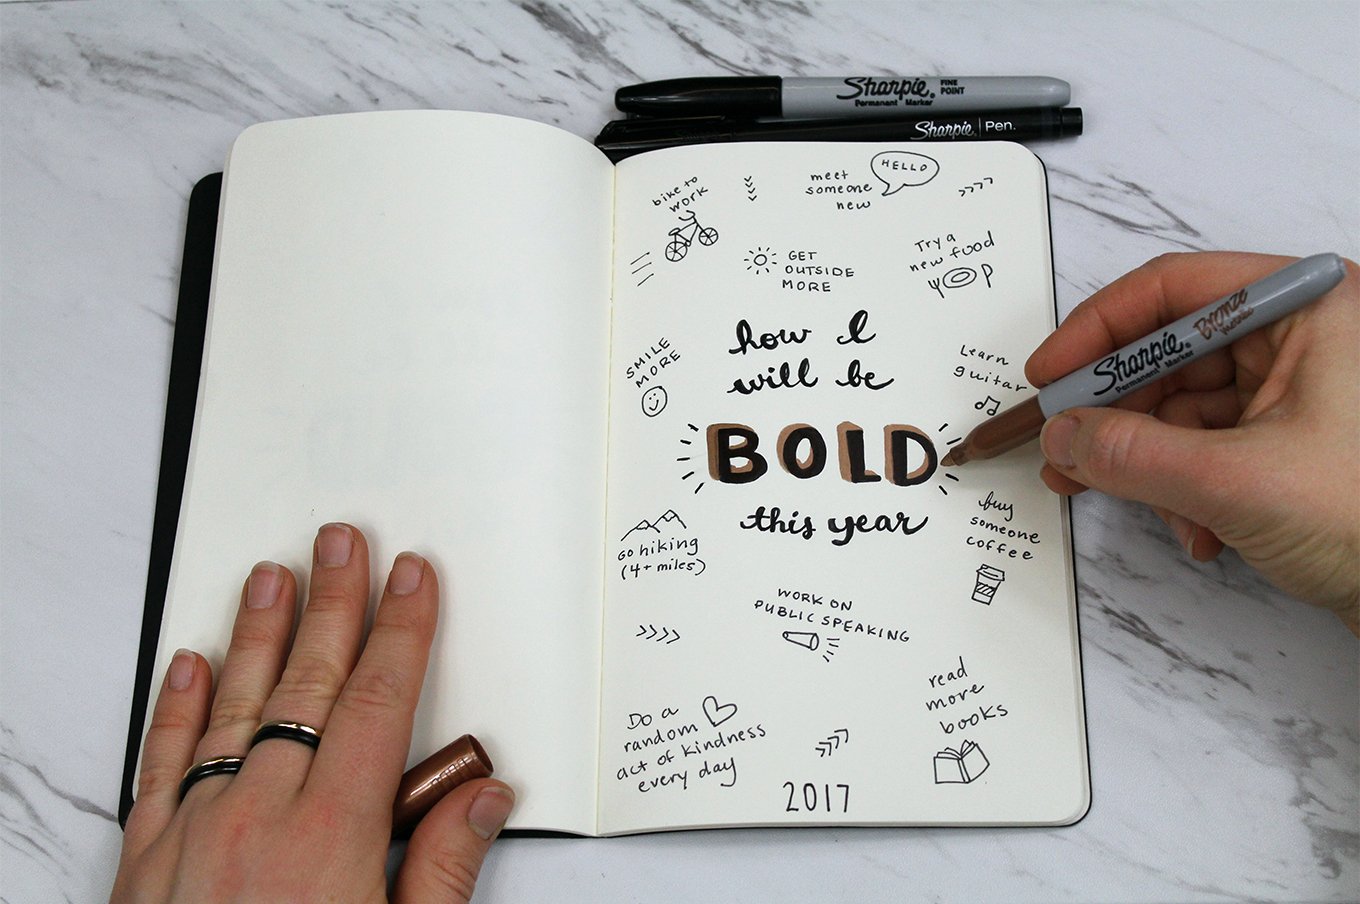 Sharpie. FINE POINT
Permanent Marker
Sharpie. Pen.
bike to
work
meet
someone
new
HELLO
GET
OUTSIDE
MORE
Try a
new food
SMILE
MORE
how I
will be
BOLD
this year
Learn
guitar
Sharpie. Bronze
Permanent Marker metallic
buy
someone
coffee
GO hiking
(4+ miles)
WORK ON
PUBLIC SPEAKING
read
more
books
Do a
random
act of kindness
every day
2017